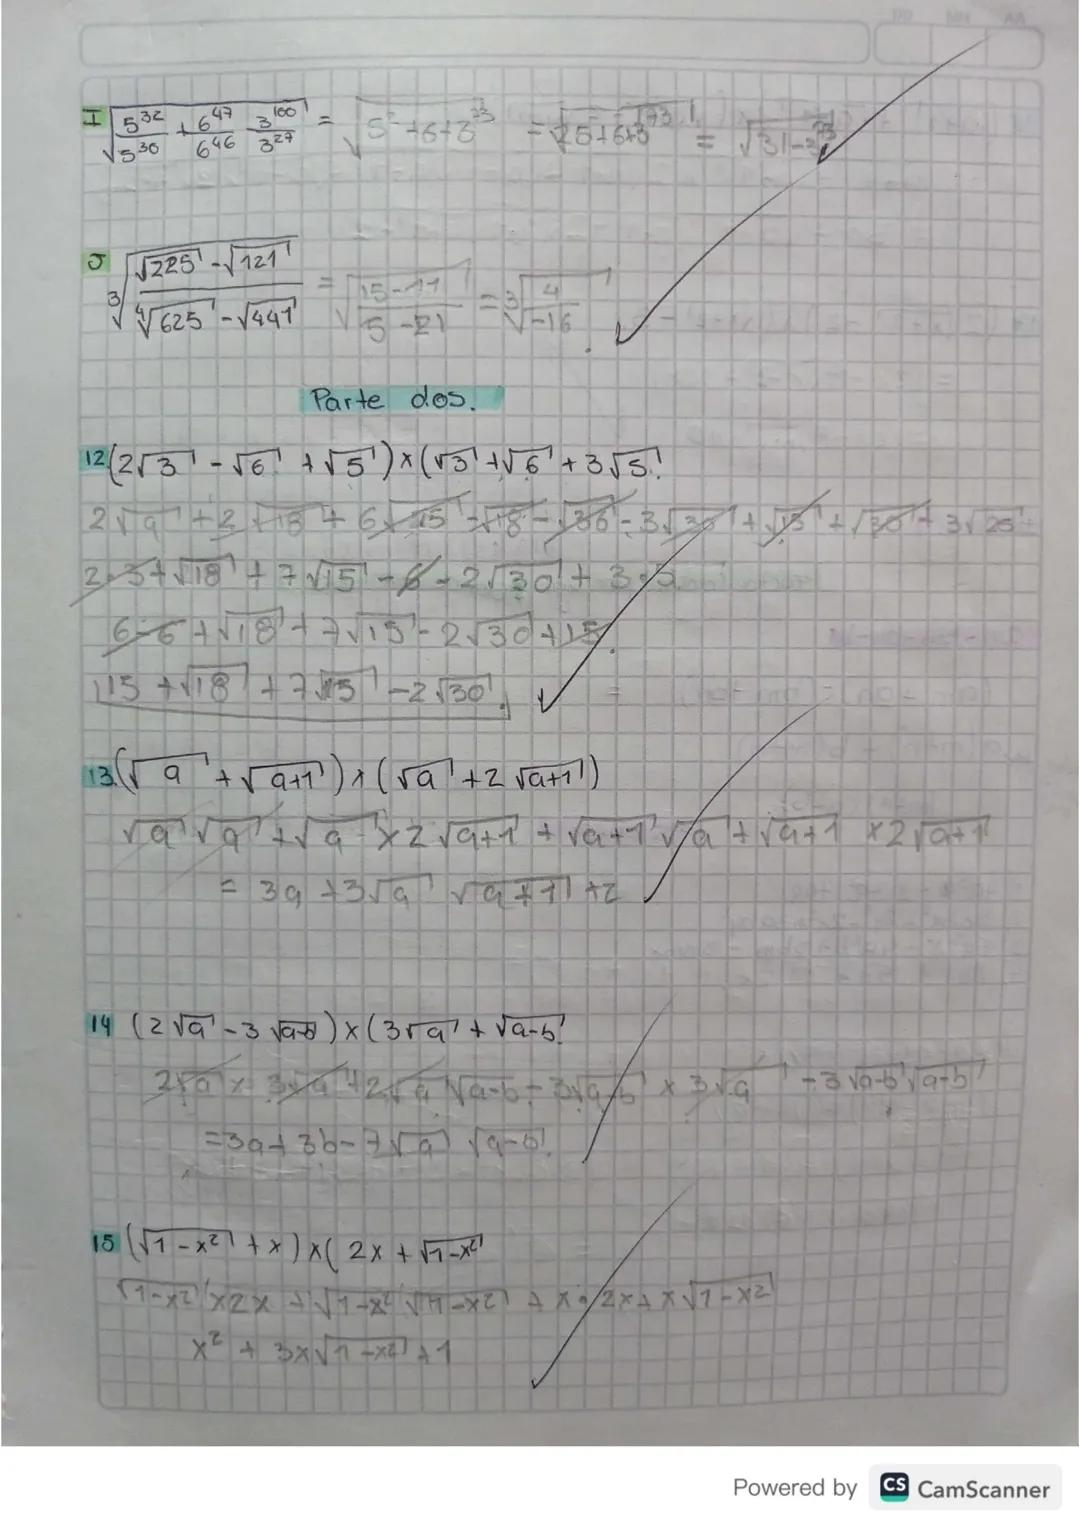 I √(5^32/5^30 + 6^47/6^46 - 3^100/3^27) = √(5² + 6 + 3^73) = √(25+6+3^73) = √(31-3^73)
J ∛((√225 - √121)/(∜625 - √441)) = √((15-11)/(5-21)) = ∛(4/-16)
Parte dos.
12 (2√3 - √6 + √5) x (√3 + √6 + 3√5
2√9 + 2√18 + 6√15 - √18 - √36 - 3√30 + √15 + √30 + 3√25
2·3 + √18 + 7√15 - 6 - 2√30 + 3·5
6-6 + √18 + 7√15 - 2√30 + 15
15 + √18 + 7√15 - 2√30
13. (√a + √a+1) x (√a + 2√a+1)
√a √a + √a x 2√a+1 + √a+1 √a + √a+1 x 2√a+1
= 3a + 3√a √a+1 + 2
14 (2√a - 3√a-b) x (3√a + √a-b
2√a x 3√a + 2√a √a-b - 3√a-b x 3√a - 3√a-b √a-b
= 3a + 3b - 7√a √a-b
15 (√1-x² + x) x (2x + √1-x²
√1-x² x 2x + √1-x² √1-x² + x · 2x + x√1-x²
x² + 3x√1-x² + 1
Powered by CS CamScanner